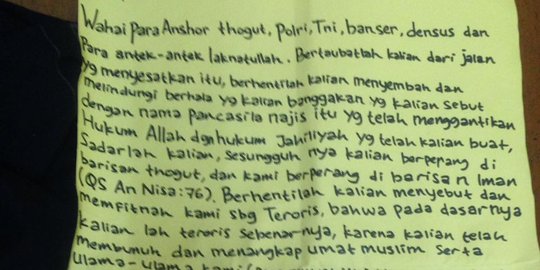 Wahai para Anshor thogut, Polri, Tni, banser, densus dan
Para antek-antek laknatullah. Bertaubatlah kalian dari jalan
yg menyesatkan itu, berhentilah kalian menyembah dan
melindungi berhala yg kalian banggakan yg kalian sebut
dengan nama pancasila najis itu yg telah menggantikan
Hukum Allah dgn hukum Jahiliyah yg telah kalian buat,
Sadarlah kalian, Sesungguh nya kalian berperang di
barisan thogut, dan kami berperang di barisan Iman
(QS An Nisa:76). Berhentilah kalian menyebut dan
memfitnah kami sbg Teroris, bahwa pada dasarnya
kalian lah teroris sebenarnya, karena kalian telah
membunuh dan menangkap umat muslim serta
ulama-ulama kami